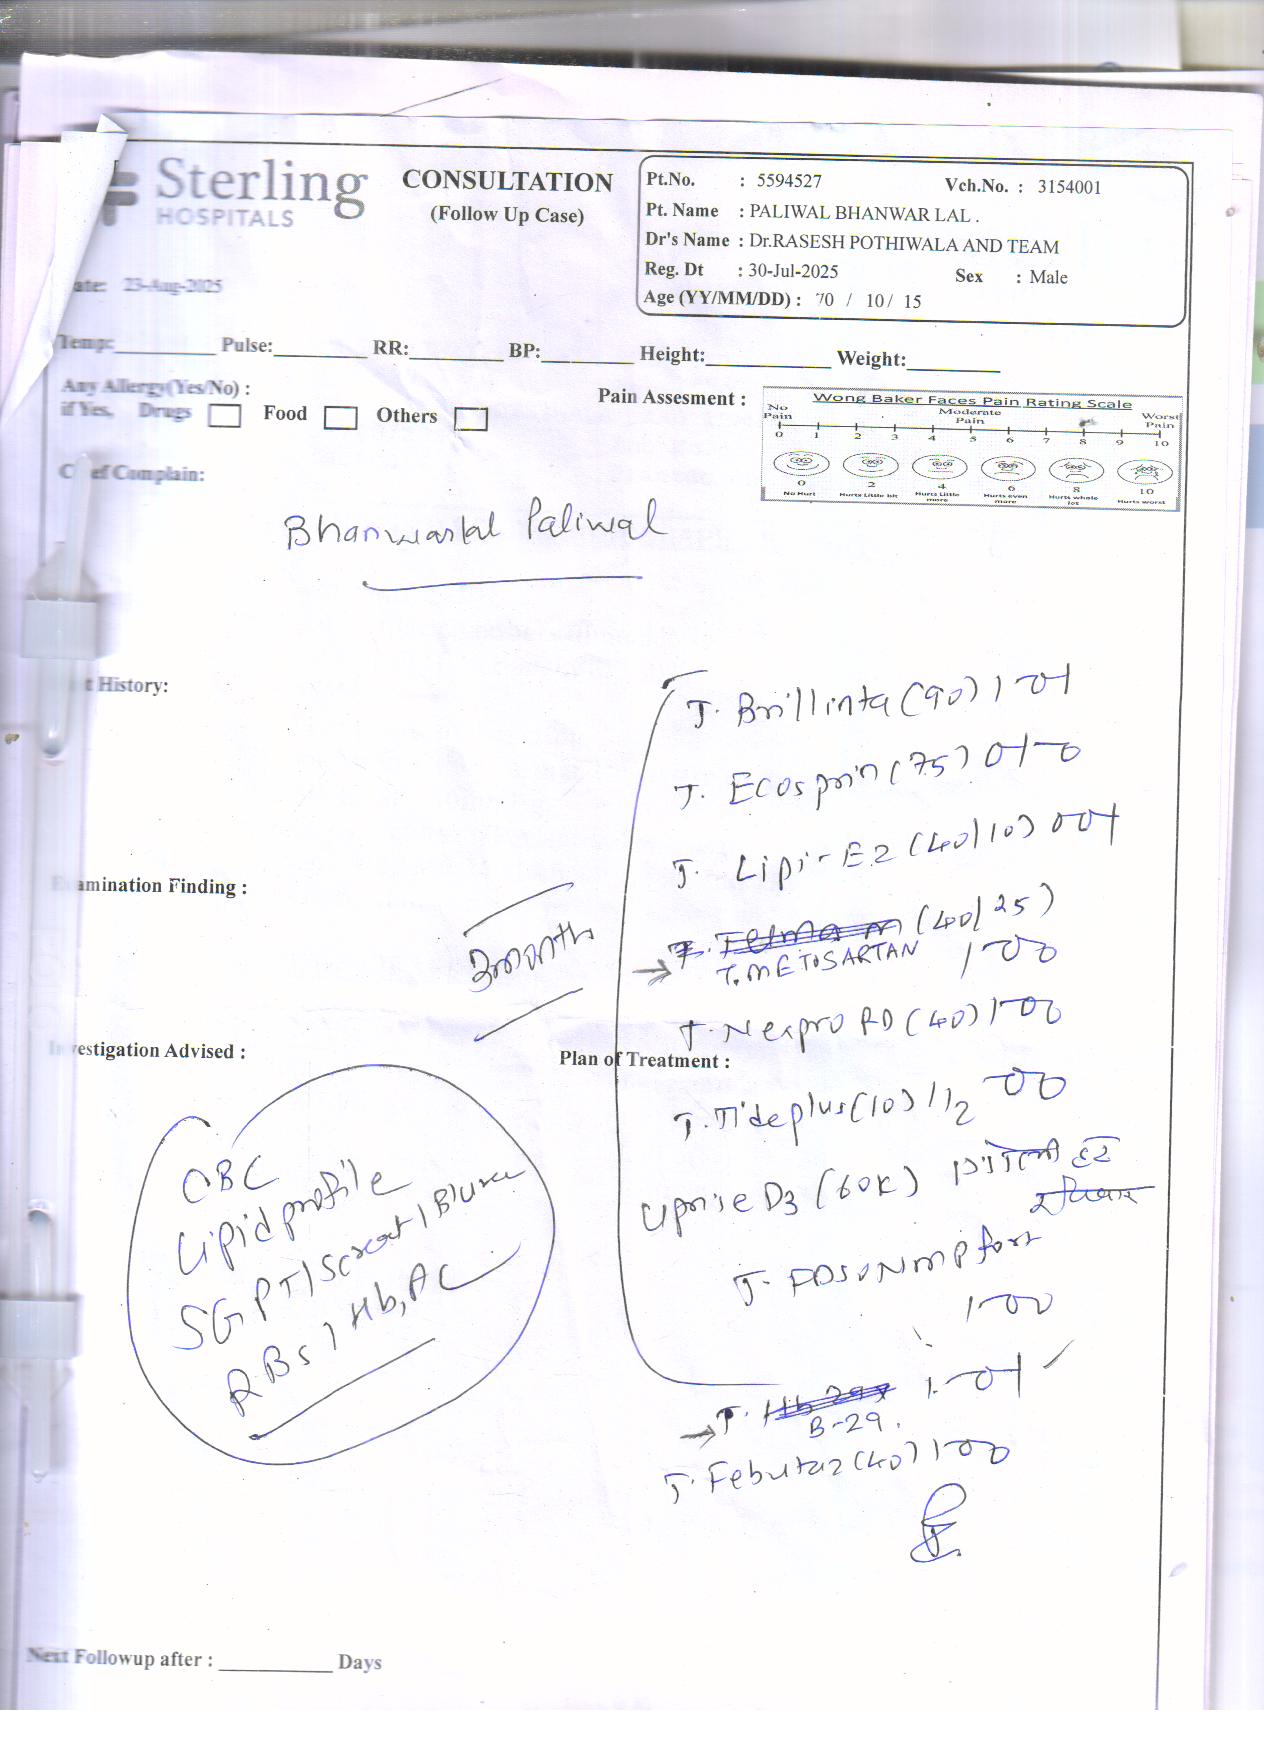 Sterling
HOSPITALS
CONSULTATION
(Follow Up Case)
Pt.No. : 5594527 Vch.No. : 3154001
Pt. Name : PALIWAL BHANWAR LAL .
Dr's Name : Dr.RASESH POTHIWALA AND TEAM
Reg. Dt : 30-Jul-2025 Sex : Male
Age (YY/MM/DD) : 70 / 10 / 15
ate: 23-Aug-2025
Temp: Pulse: RR: BP: Height: Weight:
Any Allergy(Yes/No) :
if Yes, Drugs Food Others
Pain Assesment :
Wong Baker Faces Pain Rating Scale
No Pain Moderate Pain Worst Pain
0 1 2 3 4 5 6 7 8 9 10
0 2 4 6 8 10
No Hurt Hurts Little bit Hurts Little more Hurts even more Hurts whole lot Hurts worst
C ef Complain:
Bhanwarlal Paliwal
t History:
T. Brillinta (90) 1-0-1
T. Ecosprin (75) 0-1-0
T. Lipi-EZ (40/10) 0-0-1
amination Finding :
T. Telma m (40/25)
T. METOSARTAN 1-0-0
3 months
T. Nexpro RD (40) 1-0-0
Investigation Advised :
Plan of Treatment :
T. Tide plus (10) 1/2-0-0
CBC
Lipid profile
SGPT/S creat/B/urea
RBS, Hb,AC
Uprise D3 (60K)
1-0-0
T. Hb 29 1-0-1
B-29.
T. Febutaz (40) 1-0-0
Next Followup after : Days